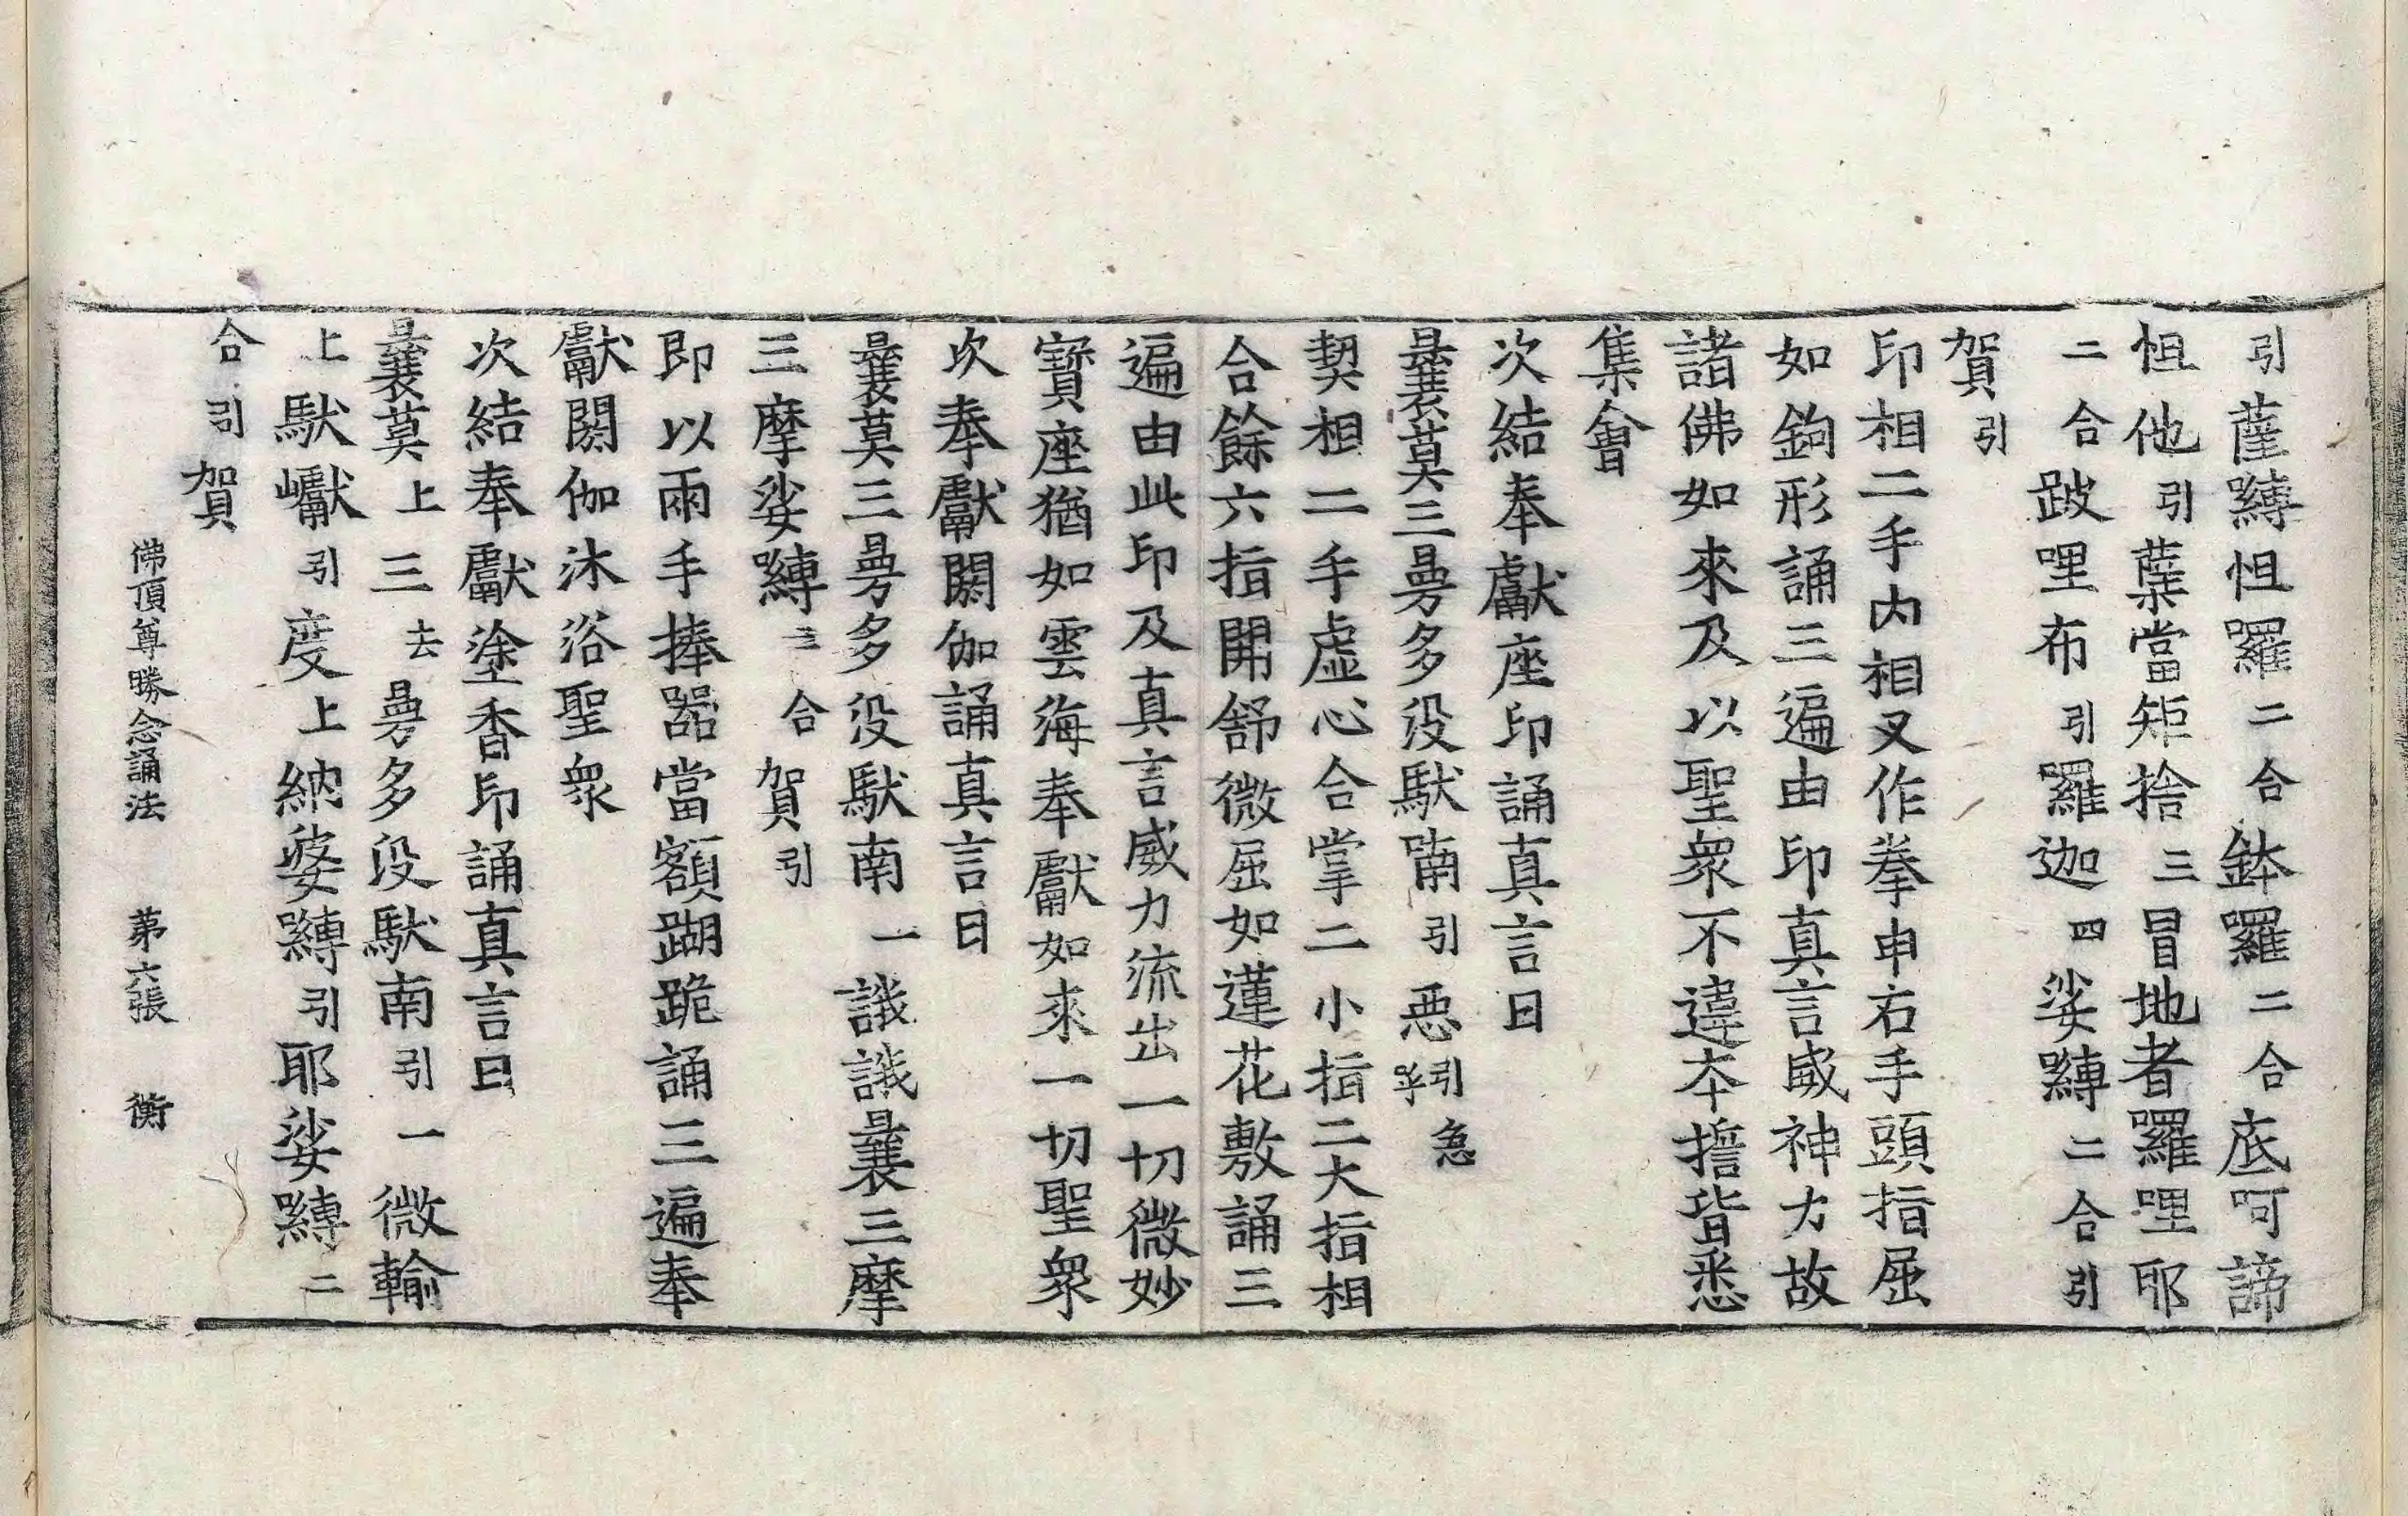 引薩嚩怛羅二合鉢羅二合底呵諦
怛他引蘖當矩捨三冒地者羅哩耶
二合跛哩布引羅迦四娑嚩二合引
賀引
印相二手内相叉作拳申右手頭指屈
如鉤形誦三遍由印真言威神力故
諸佛如來及以聖衆不違本擔皆悉
集會
次結奉獻座印誦真言曰
曩莫三曼多没馱喃引惡引急呼
契相二手虛心合掌二小指二大指相
合餘六指開舒微屈如蓮花敷誦三
遍由此印及真言威力流出一切微妙
寶座猶如雲海奉獻如來一切聖衆
次奉獻閼伽誦真言曰
曩莫三曼多没馱南一誐誐曩三摩
三摩娑嚩三合賀引
即以兩手捧器當額蹋跪誦三遍奉
獻閼伽沐浴聖衆
次結奉獻塗香印誦真言曰
曩莫上三去曼多没馱南引一微輸
上馱巘引度上納婆嚩引耶娑嚩二
合引賀
佛頂尊勝念誦法 第六張 衡